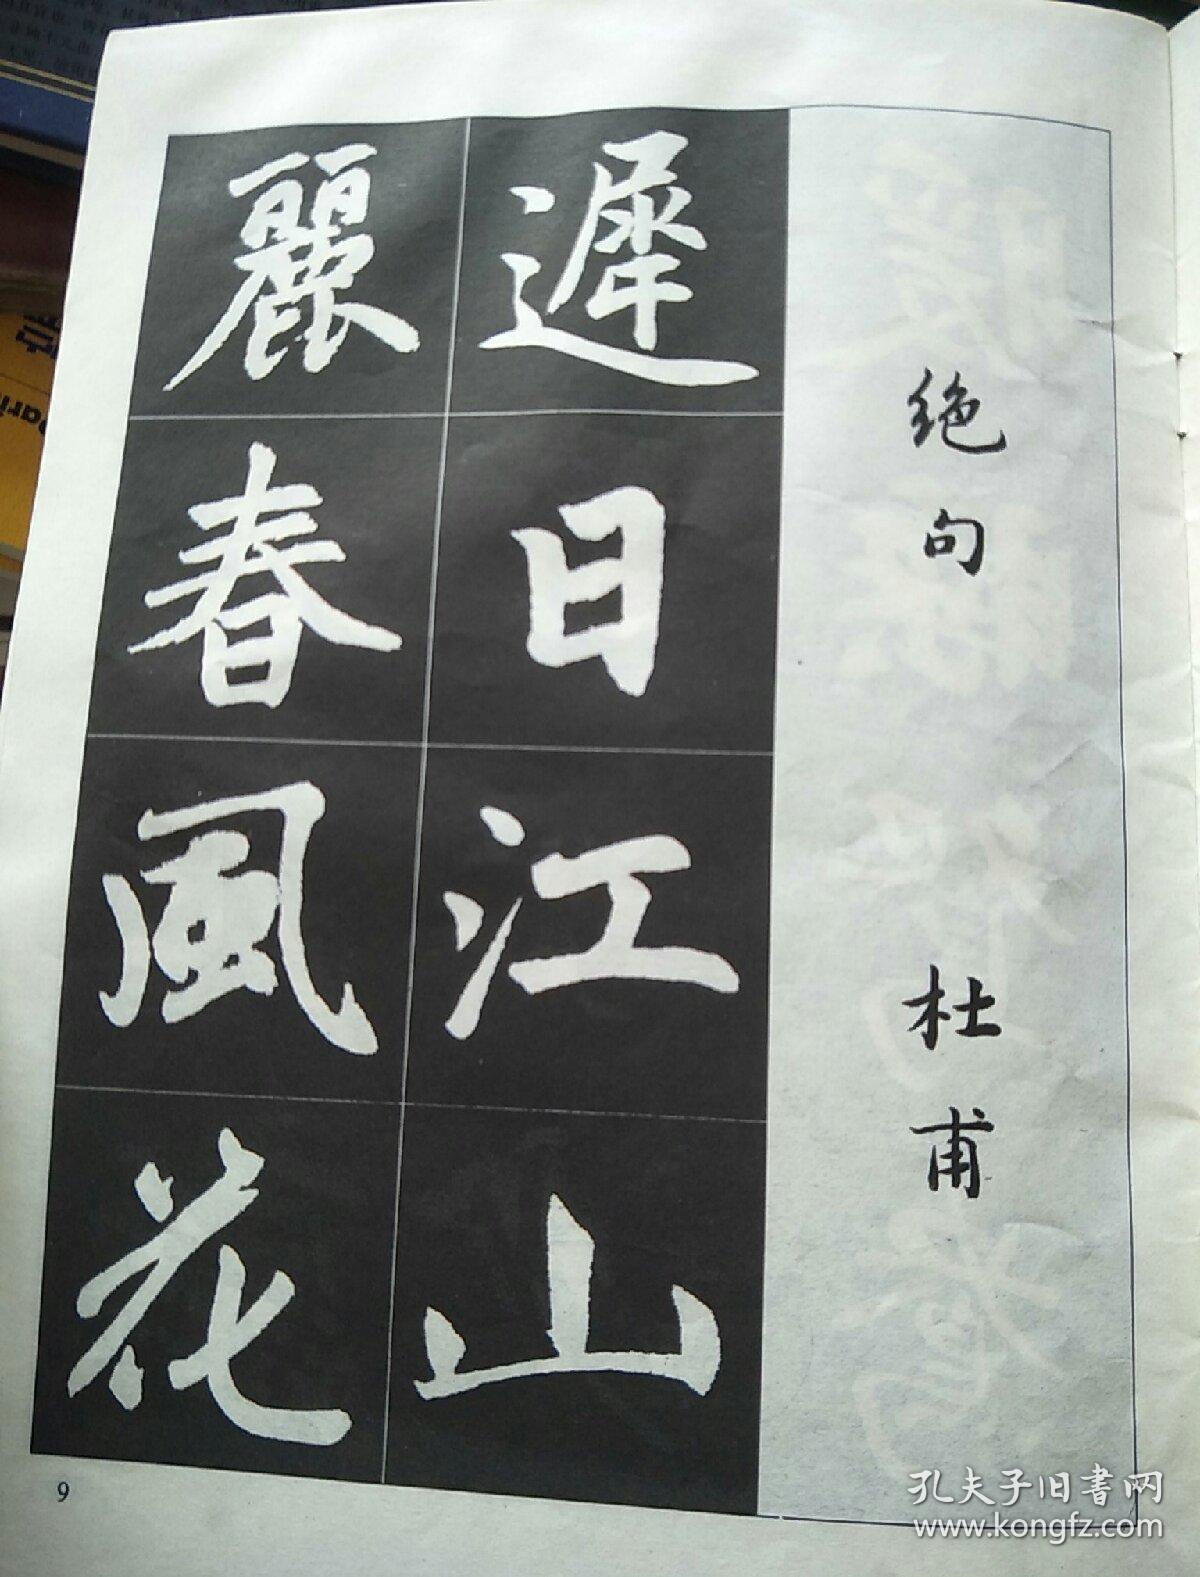 绝句 杜甫
遲日江山
麗春風花
9
孔夫子旧书网
www.kongfz.com